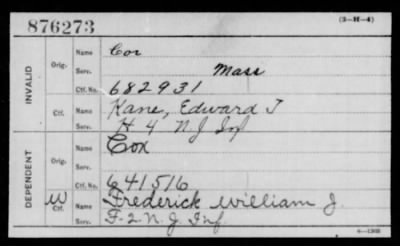 876273 (3-H-4)
INVALID
Orig. Name Cox
Serv. Mass
Ctf. No. 682931
Ctf. Name Kane, Edward T
Serv. H 4 N.J Inf
DEPENDENT
Orig. Name Cox
Serv.
Ctf. No. 641516
W Ctf. Name Frederick William J.
Serv. F-2 N.J Inf